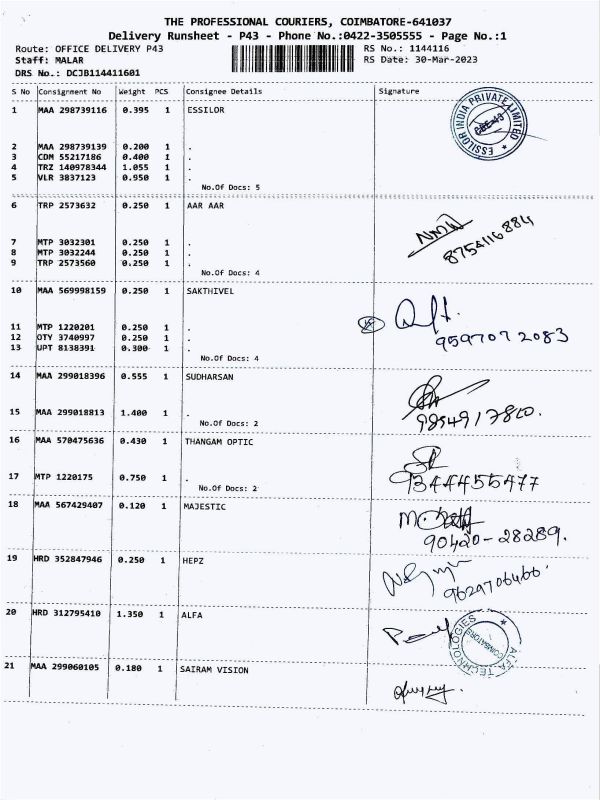 THE PROFESSIONAL COURIERS, COIMBATORE-641037
Delivery Runsheet - P43 - Phone No.:0422-3505555 - Page No.:1
Route: OFFICE DELIVERY P43 RS No.: 1144116
Staff: MALAR RS Date: 30-Mar-2023
DRS No.: DCJB114411601
S No Consignment No Weight PCS Consignee Details Signature
1 MAA 298739116 0.395 1 ESSILOR
ESSILOR INDIA PRIVATE LIMITED
CBE-43
2 MAA 298739139 0.200 1 .
3 CDM 55217186 0.400 1 .
4 TRZ 140978344 1.055 1 .
5 VLR 3837123 0.950 1 .
No.Of Docs: 5
6 TRP 2573632 0.250 1 AAR AAR
8754116884
7 MTP 3032301 0.250 1 .
8 MTP 3032244 0.250 1 .
9 TRP 2573560 0.250 1 .
No.Of Docs: 4
10 MAA 569998159 0.250 1 SAKTHIVEL
11 MTP 1220201 0.250 1 .
12 OTY 3740997 0.250 1 .
13 UPT 8138391 0.300 1 .
9597072083
No.Of Docs: 4
14 MAA 299018396 0.555 1 SUDHARSAN
15 MAA 299018813 1.400 1 .
No.Of Docs: 2
16 MAA 570475636 0.430 1 THANGAM OPTIC
17 MTP 1220175 0.750 1 .
9344455477
No.Of Docs: 2
18 MAA 567429407 0.120 1 MAJESTIC
90420-28289.
19 HRD 352847946 0.250 1 HEPZ
9629706466
20 HRD 312795410 1.350 1 ALFA
ALFA TECHNOLOGIES
COIMBATORE
21 MAA 299060105 0.180 1 SAIRAM VISION